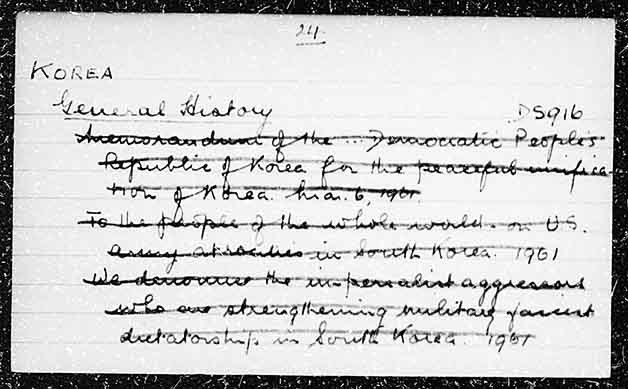 24
KOREA
General History DS916
Memorandum of the ... Democratic People's
Republic of Korea for the peaceful unifica-
tion of Korea. Mar. 6, 1961
To the people of the whole world - on U.S.
army atrocities in South Korea. 1961
We denounce the imperialist aggressors
who are strengthening military fascist
dictatorship in South Korea. 1961